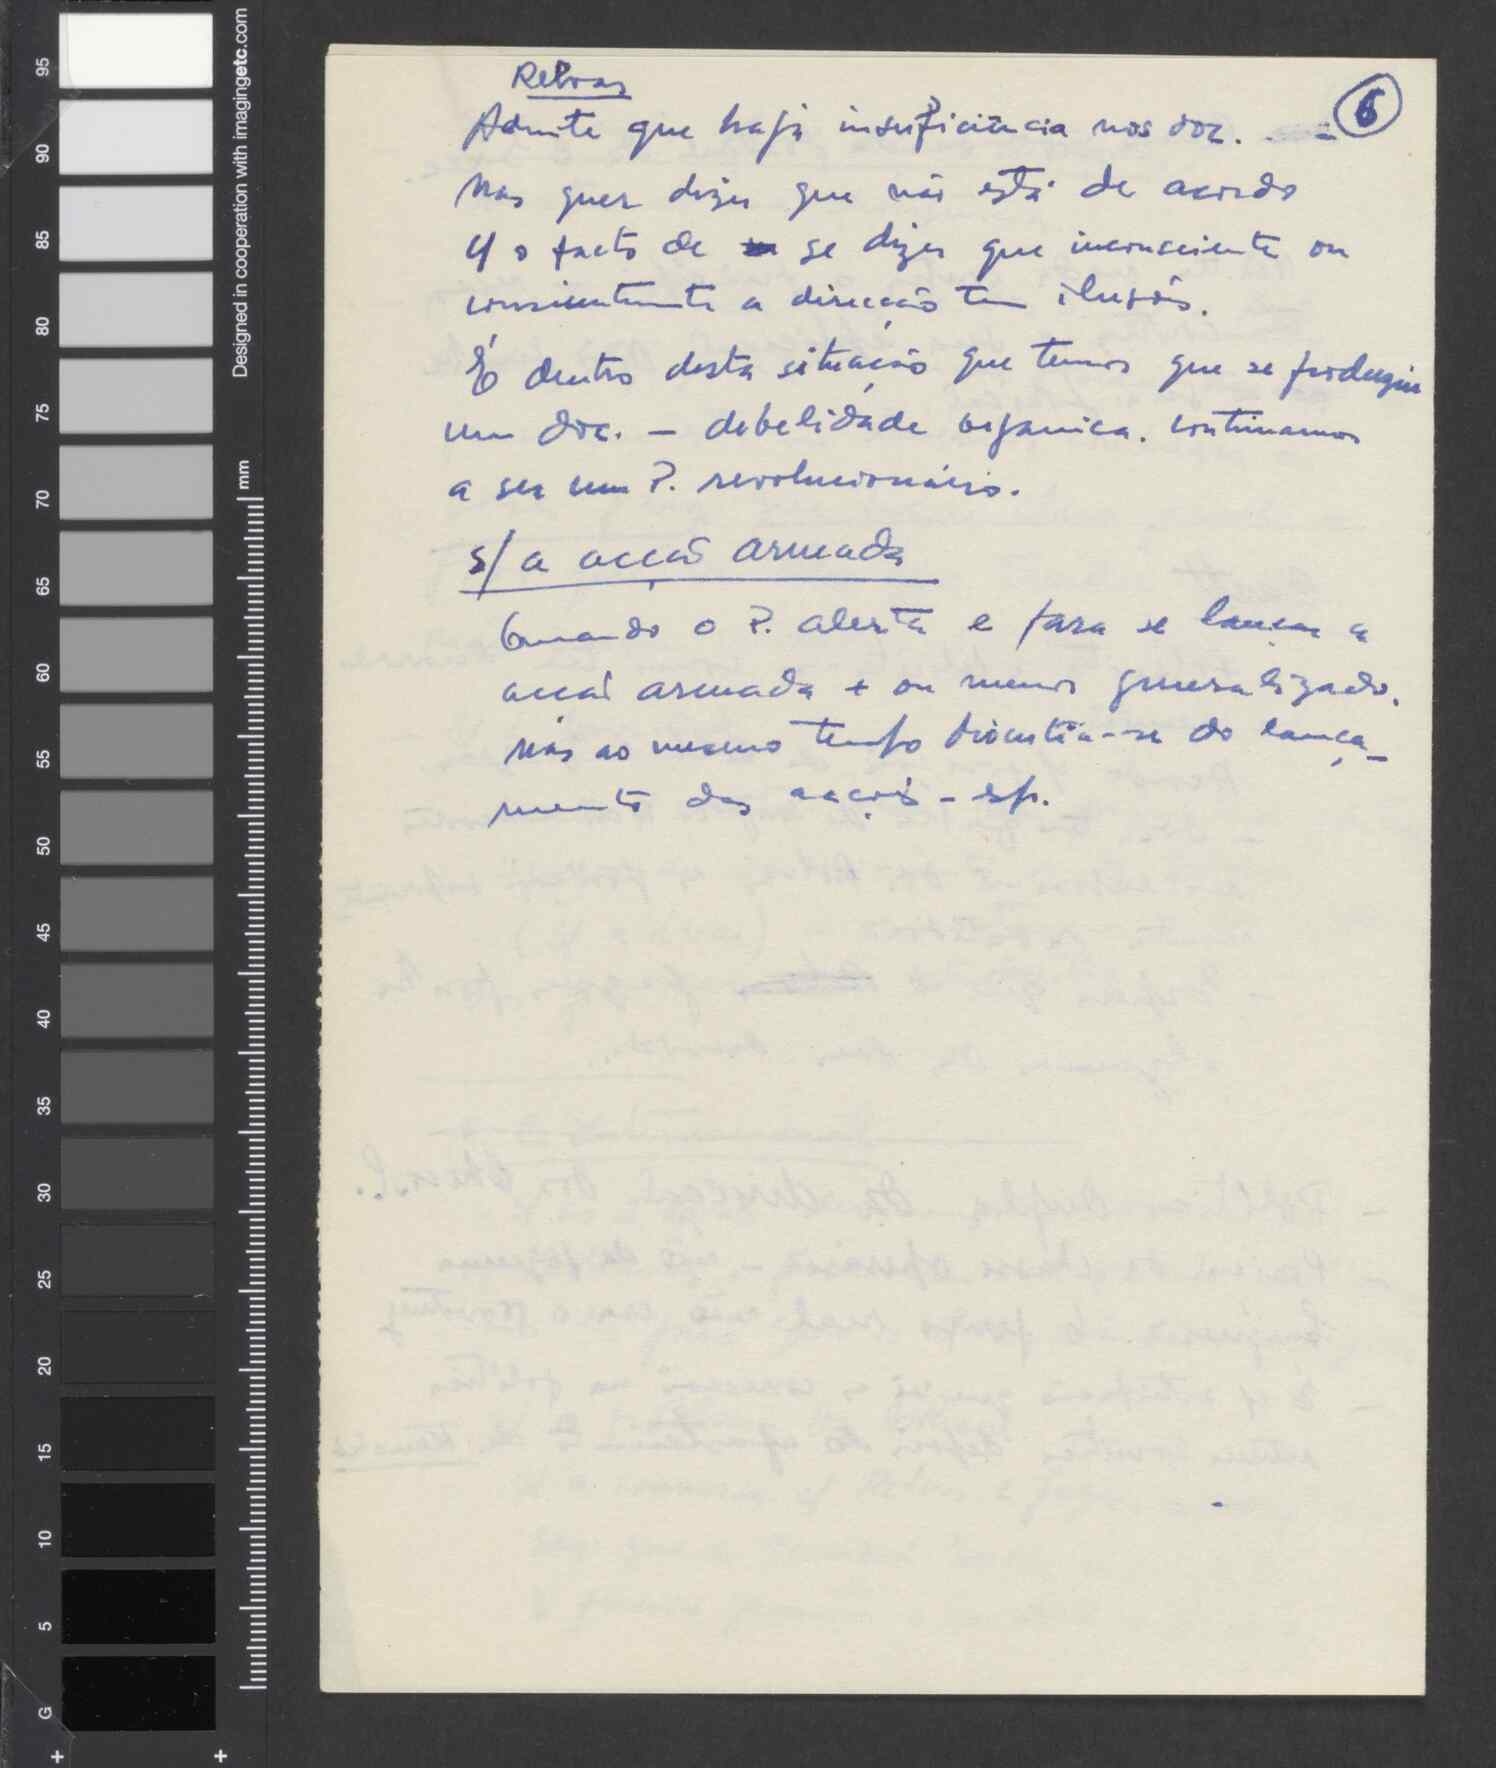 Designed in cooperation with imagingetc.com
mm
95
90
85
80
75
70
65
60
55
50
45
40
35
30
25
20
15
10
5
G
6
Admite que haja insuficiência nos doc.
Mas quer dizer que não está de acordo
c/ o facto de se dizer que inconsciente ou
conscientemente a direcção tem ilusões.
É dentro desta situação que temos que se produziu
um doc. – debelidade organica. Continuamos
a ser um P. revolucionário.
s/ a acção armada
Quando o P. alerta é para se lançar a
acção armada + ou menos generalizado.
Mas ao mesmo tempo discutia-se do lança-
mento das acções – esp.